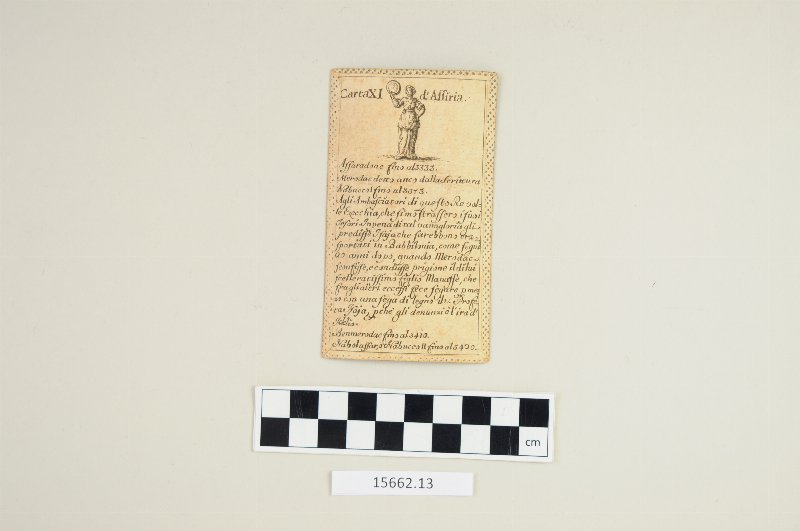 Carta XI d'Assiria.
Assaradone fino al 3333.
Merodac detto anco dalla scrittura
Nabucco I fino al 3373.
Agli Ambasciatori di questo Re vol-
le Ezechia, che si mostrassero i suoi
Tesori. In pena di tal vanagloria gli
predisse Isaja che sarebbono tra-
sportati in Babbilonia, come seguì
anni dopo, quando Merodac
condusse prigione il di lui
scelleratissimo figlio Manasse, che
fra gli altri eccessi fece segare pmez
zo con una sega di legno il Profe
ta Isaja, pchè gli denunziò l'ira d'
Iddio.
Benmerodac fino al 3410.
Nabolassar, o Nabucco II fino al 3430.
cm
15662.13